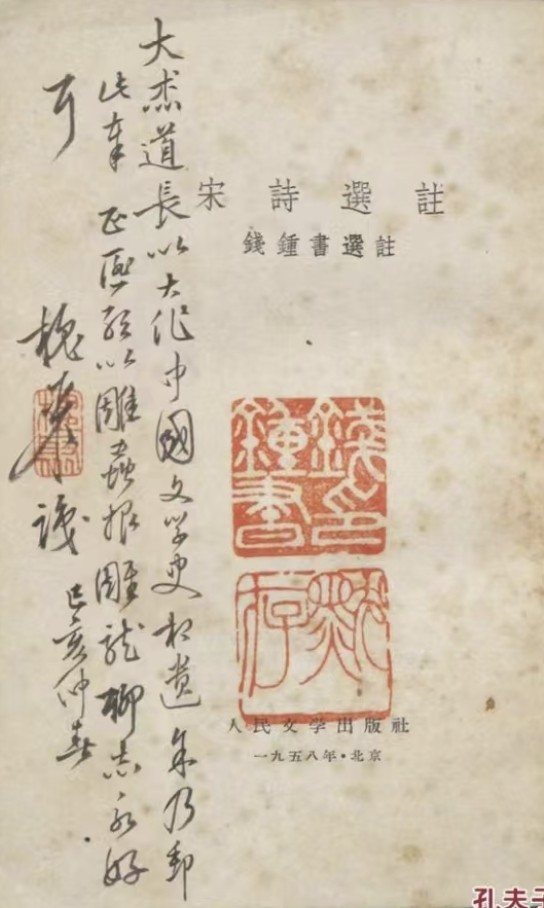 大杰道長以大作中國文学史相遺余乃郵
此奉 正匪以雕蟲报雕龍聊志永好
耳
槐聚識 己亥仲春
宋詩選註
錢鍾書選註
錢鍾書印
默存
人民文学出版社
一九五八年·北京
孔夫子